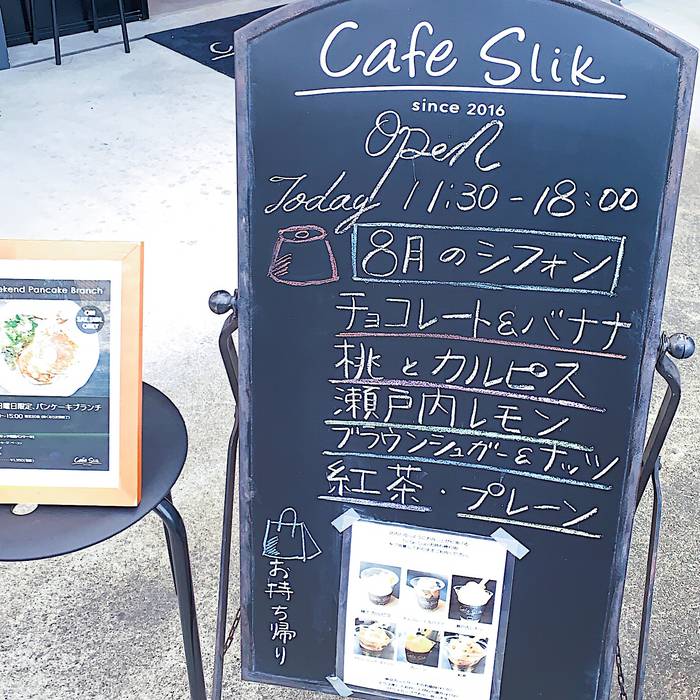 Cafe Slik
since 2016
Open
Today 11:30-18:00
8月のシフォン
チョコレート&バナナ
桃とカルピス
瀬戸内レモン
ブラウンシュガー&ナッツ
紅茶・プレーン
お持ち帰り
ekend Pancake Branch
ON
SAT, SUN
ONLY
日曜日限定、パンケーキブランチ
15:00
Cafe Slik